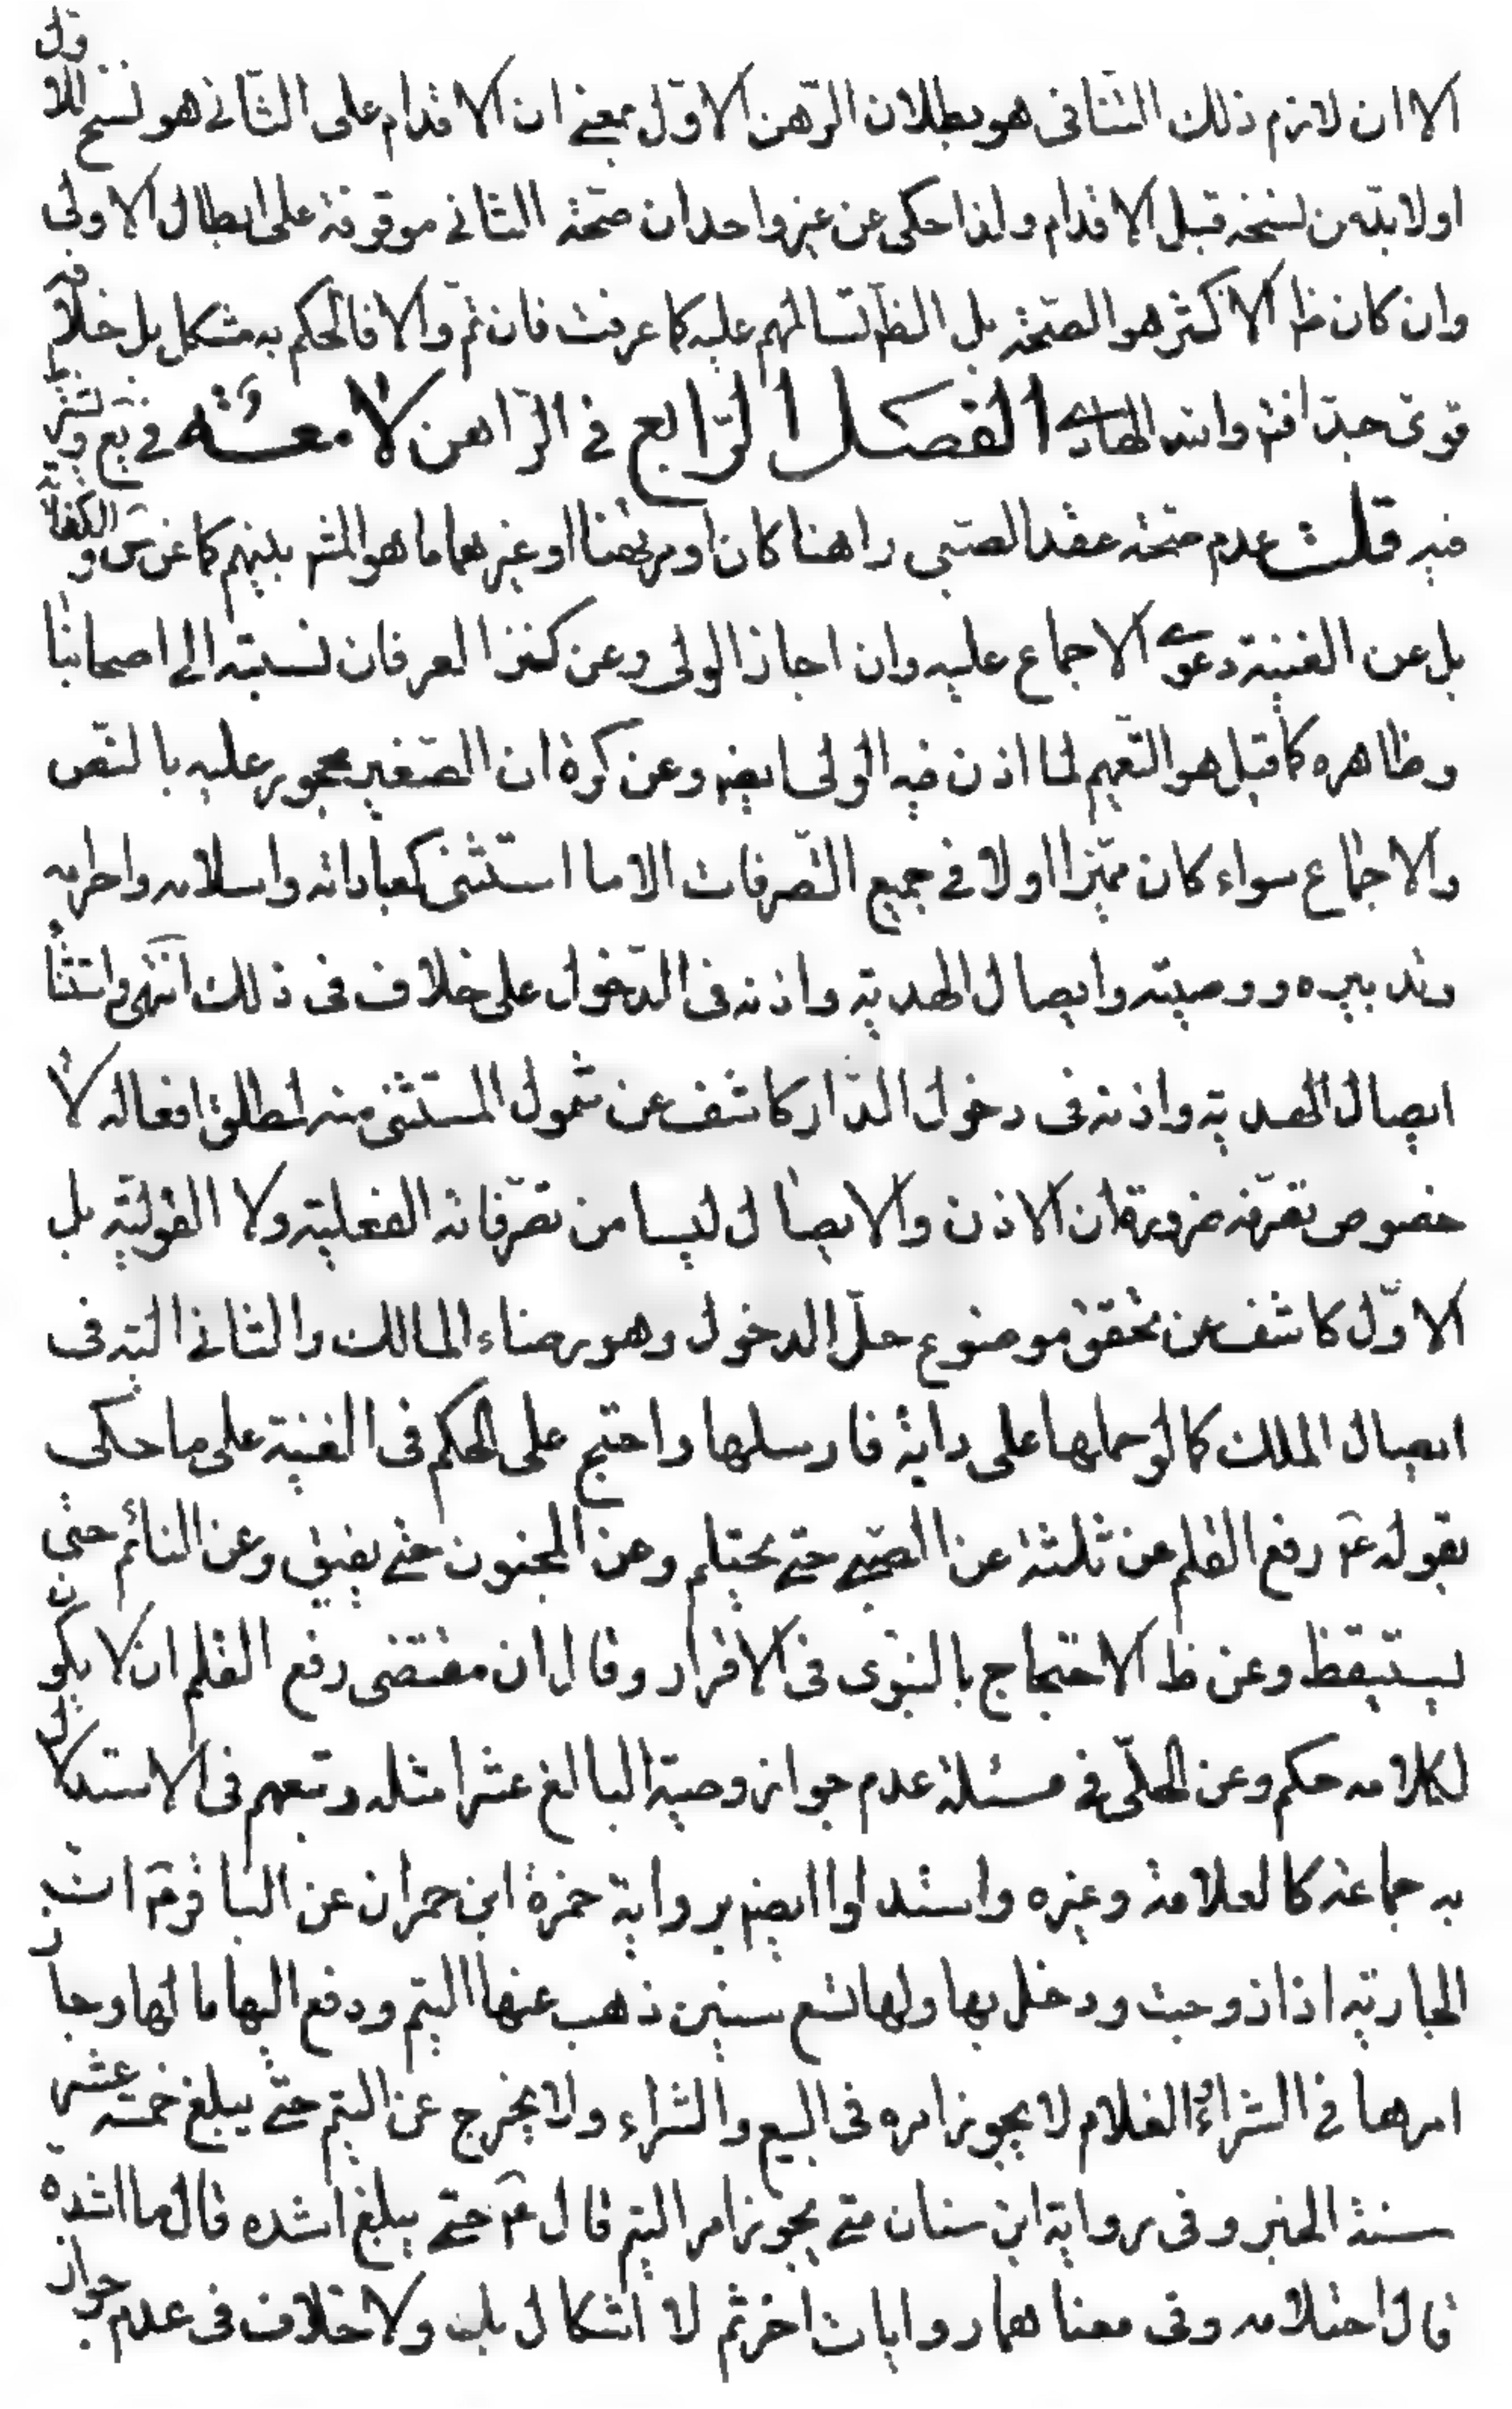 الا ان لازم ذلك الثاني هو بطلان الرّهن الاوّل بمعنى ان الاقدام على الثّانى هو نسخ للاول
اولابدّ من نسخه قبل الاقدام ولذا حكى عن غير واحد ان صحّة الثانى موقوفة على ابطال الاولى
وان كان ظ الاكثر هو الصّحة بل الظّ تسالمهم عليه كما عرفت فان تمّ والا فالحكم به مشكل بل خلافه
قوىّ جدّا فتم والله الهادى الفصل الرّابع فى الرّاهن لامعته فى يع
فيه قلت عدم صحّة عقد الصّبى راهنا كان او مرتهنا او غيرهما ما هو المش بينهم كما عن س والكفاية
بل عن الغنية دعوى الاجماع عليه وان اجاز الولى وعن كنز العرفان نسبته الى اصحابنا
وظاهره كما قيل هو التّعميم لما اذن فيه الولى ايضم وعن كرة ان الصّغير محجور عليه بالنّص
والاجماع سواء كان مميّزا اولا فى جميع التّصرفات الا ما استثنى كعباداته واسلامه واحرامه
وتدبيره ووصيته وايصال الهديّة واذنه فى الدّخول على خلاف فى ذلك انتهى واستثناء
ايصال الهديّة واذنه فى دخول الدّار كاشف عن شمول المستثنى منه لمطلق افعاله لا
خصوص تصرّفه ضرورة ان الاذن والايصال ليسا من تصرّفاته الفعلية ولا القوليّة بل
الاوّل كاشف عن تحقق موضوع حلّ الدخول وهو رضاء المالك والثانى الته فى
ايصال الملك كما لو حملها على دابة فارسلها واحتج على الحكم فى الغنية على ما حكى
بقوله عم رفع القلم عن ثلثة عن الصّبى حتى يحتلم وعن المجنون حتى يفيق وعن النائم حتى
يستيقظ وعن ظ الاحتجاج بالنبّوى فى الاقرار وقال ان مقتضى رفع القلم ان لا يكون
لكلامه حكم وعن الحلّى فى مسئلة عدم جواز وصية البالغ عشرا مثله وتبعهم فى الاستدلال
به جماعة كالعلامة وغيره واستدلوا ايضم برواية حمزة ابن حمران عن الباقر عم ان
الجارية اذا زوجت ودخل بها ولها تسع سنين ذهب عنها اليتم ودفع اليها مالها وجاز
امرها فى الشراء والغلام لا يجوز امره فى البيع والشراء ولا يخرج عن اليتم حتّى يبلغ خمسة عشر
سنة الخبر وفى رواية ابن سنان متى يجوز امر اليتم قال عم حتى يبلغ اشده قال ما اشده
قال احتلامه وفى معناهما روايات اخر ثم لا اشكال بل ولا خلاف فى عدم جواز